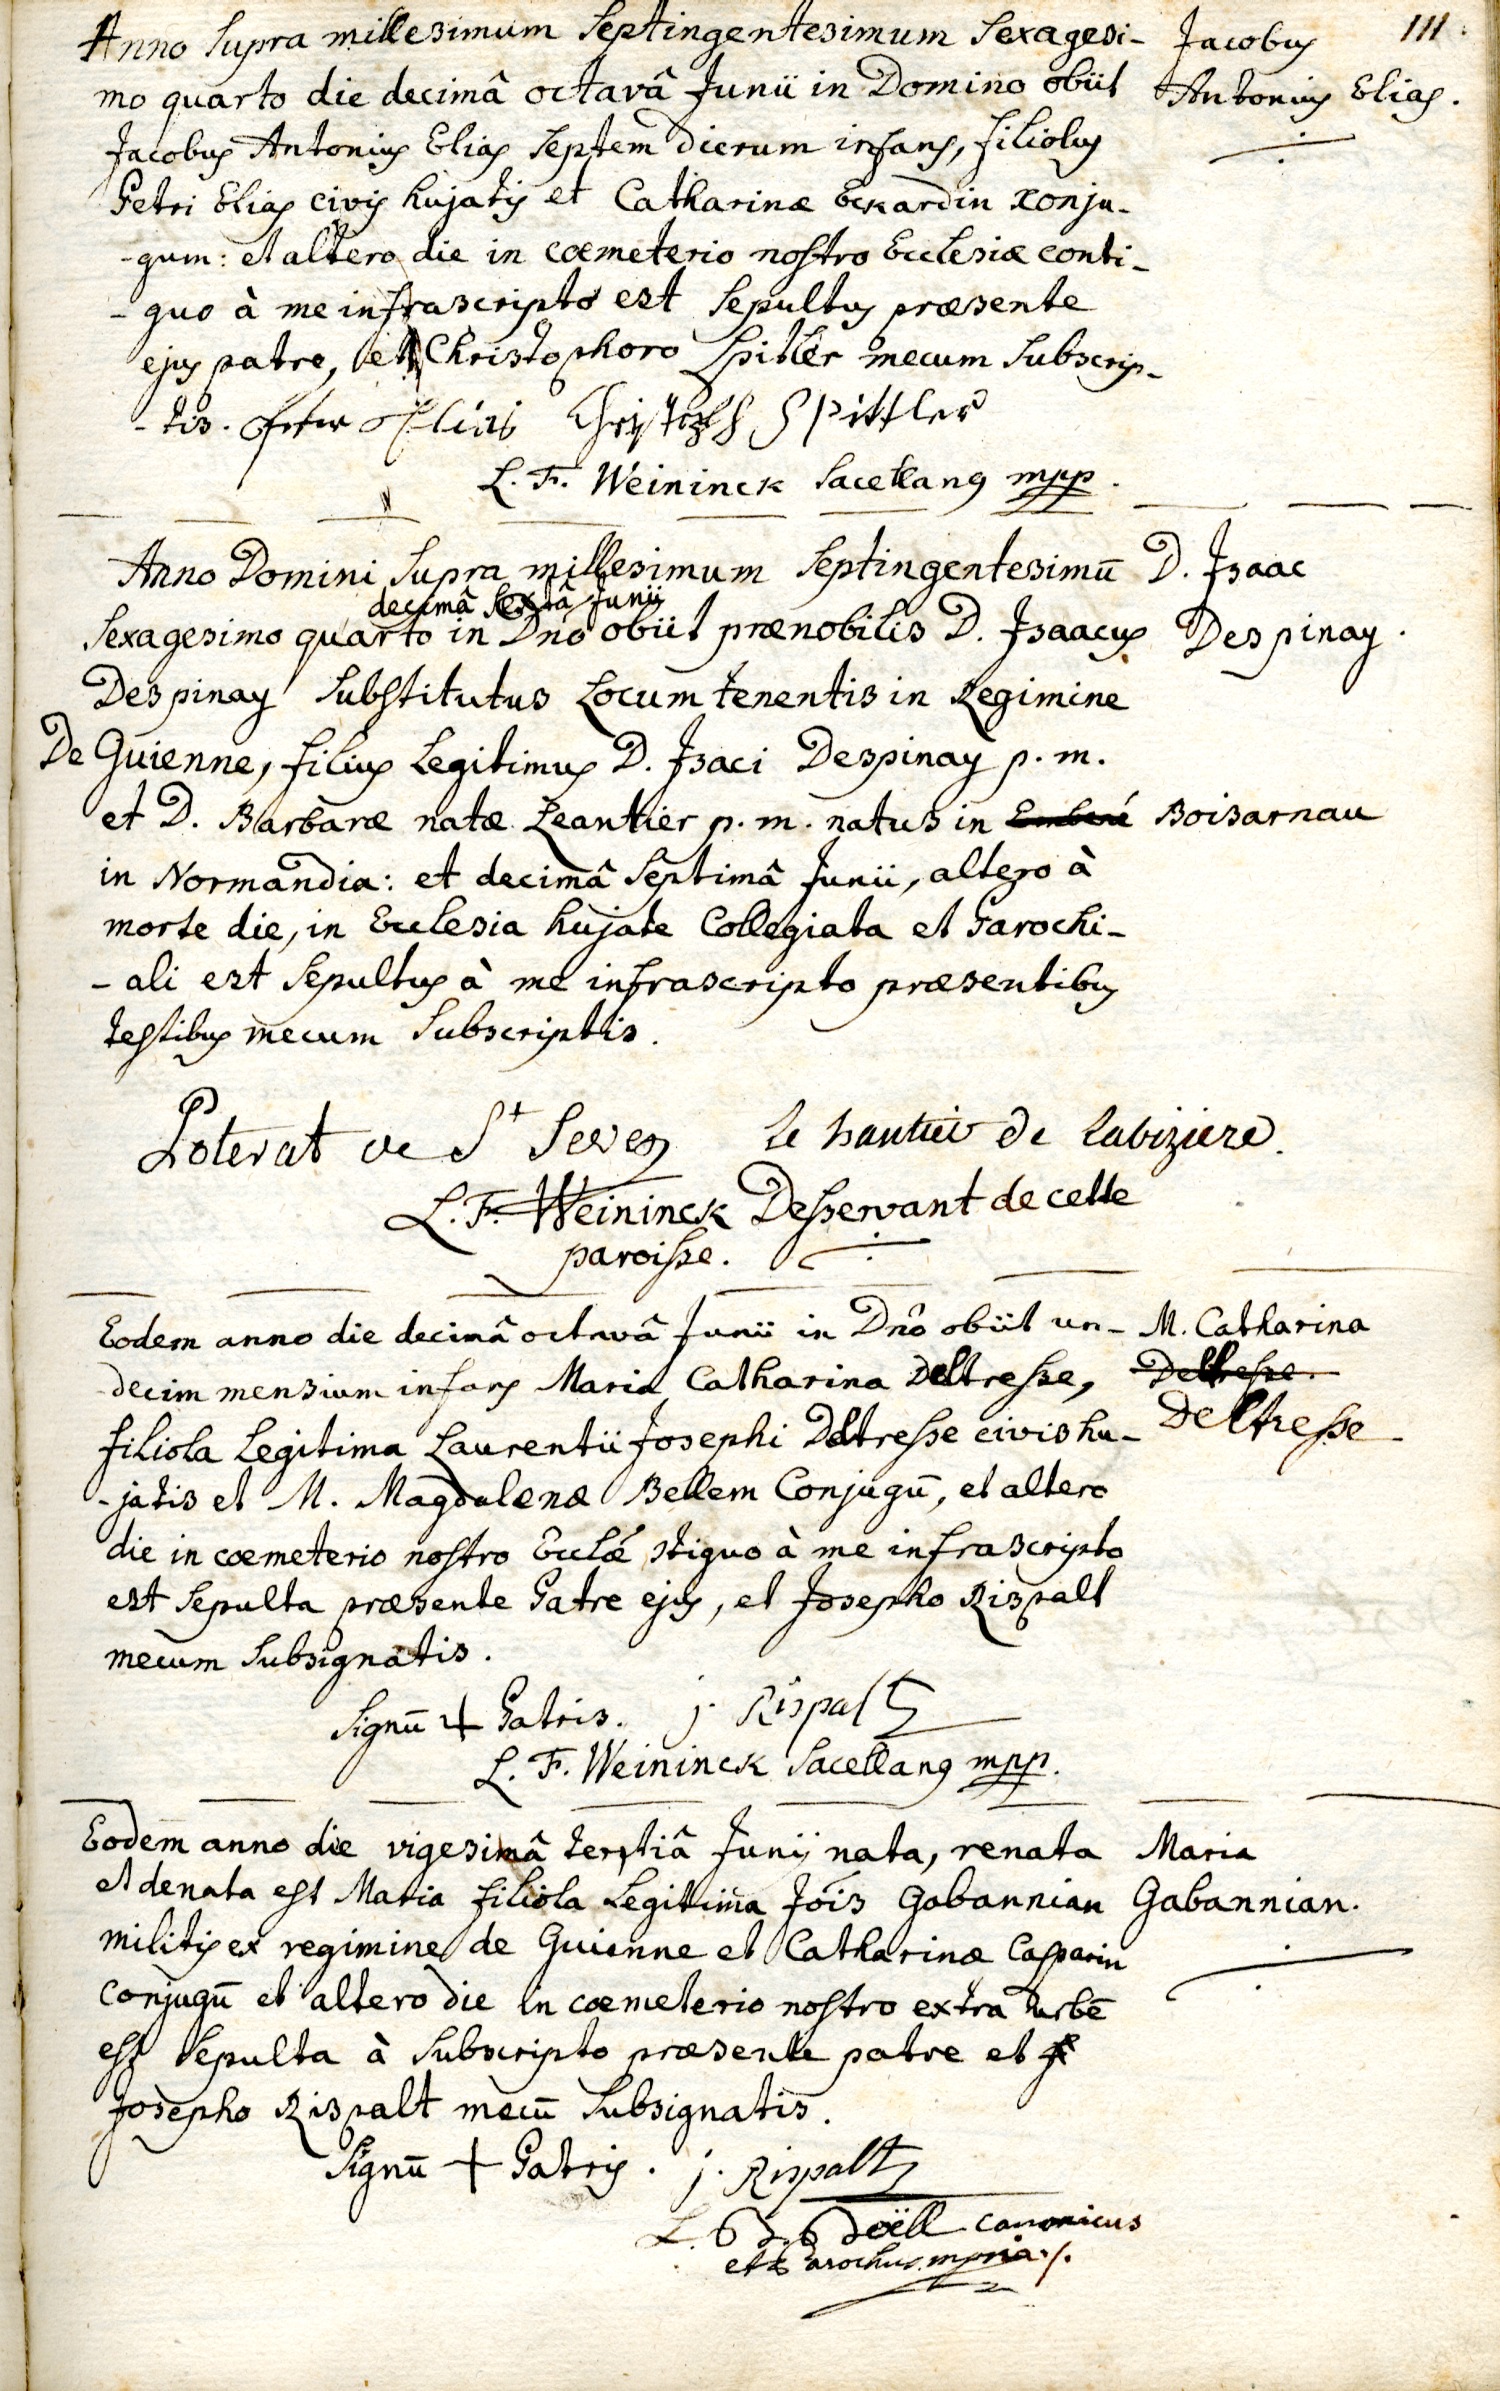 111.
Anno Supra millesimum Septingentesimum Sexagesi-
mo quarto die decimâ octavâ Junii in Domino obiit
Jacobus Antonius Elias Septem dierum infans, filiolus
Petri Elias civis hujatis et Catharinæ Eckardin conju-
-gum: et altero die in cœmeterio nostro Ecclesiæ conti-
-guo à me infrascripto est Sepultus præsente
ejus patre, et Christophoro Spitler mecum Subscrip-
-tis. Peter Elias Christoph Spittler
L. F. Weininck Sacellang mpp.
Jacobus
Antonius Elias.
Anno Domini Supra millesimum Septingentesimū
decimâ Sextâ Junii
Sexagesimo quarto in Dn̄o obiit prænobilis D. Isaacus
Despinay Substitutus Locum tenentis in Regimine
De Guienne, filius Legitimus D. Isaci Despinay p. m.
et D. Barbaræ natæ Leantier p. m. natus in Boisarnau
in Normandia: et decimâ Septimâ Junii, altero à
morte die, in Ecclesia hujate Collegiata et Parochi-
-ali est Sepultus à me infrascripto præsentibus
testibus mecum Subscriptis.
D. Isaac
Despinay.
Poterat de St Sever le hantier de labiziere.
L. F. Weininck Desservant de cette
paroisse.
Eodem anno die decimâ octavâ Junii in Dn̄o obiit un-
decim mensium infans Maria Catharina Deltresse,
filiola Legitima Laurentii Josephi Deltresse civis hu-
-jatis et M. Magdalenæ Bellem Conjugū, et altero
die in cœmeterio nostro Ecclǣ ɔtiguo à me infrascripto
est Sepulta præsente Patre ejus, et Josepho Rispalt
mecum Subsignatis.
M. Catharina
Deltresse.
Deltresse
Signū + Patris. j. Rispalt
L. F. Weininck Sacellang mpp.
Eodem anno die vigesimâ tertiâ Junij nata, renata
et denata est Maria filiola Legitima Jōis Gabannian
militis ex regimine de Guienne et Catharinæ Casparin
conjugū et altero die in cœmeterio nostro extra urbē
est Sepulta à Subscripto præsente patre et
Josepho Rispalt mecū Subsignatis.
Maria
Gabannian.
Signū + Patris. j. Rispalt
canonicus
et Parochus mpria ./.